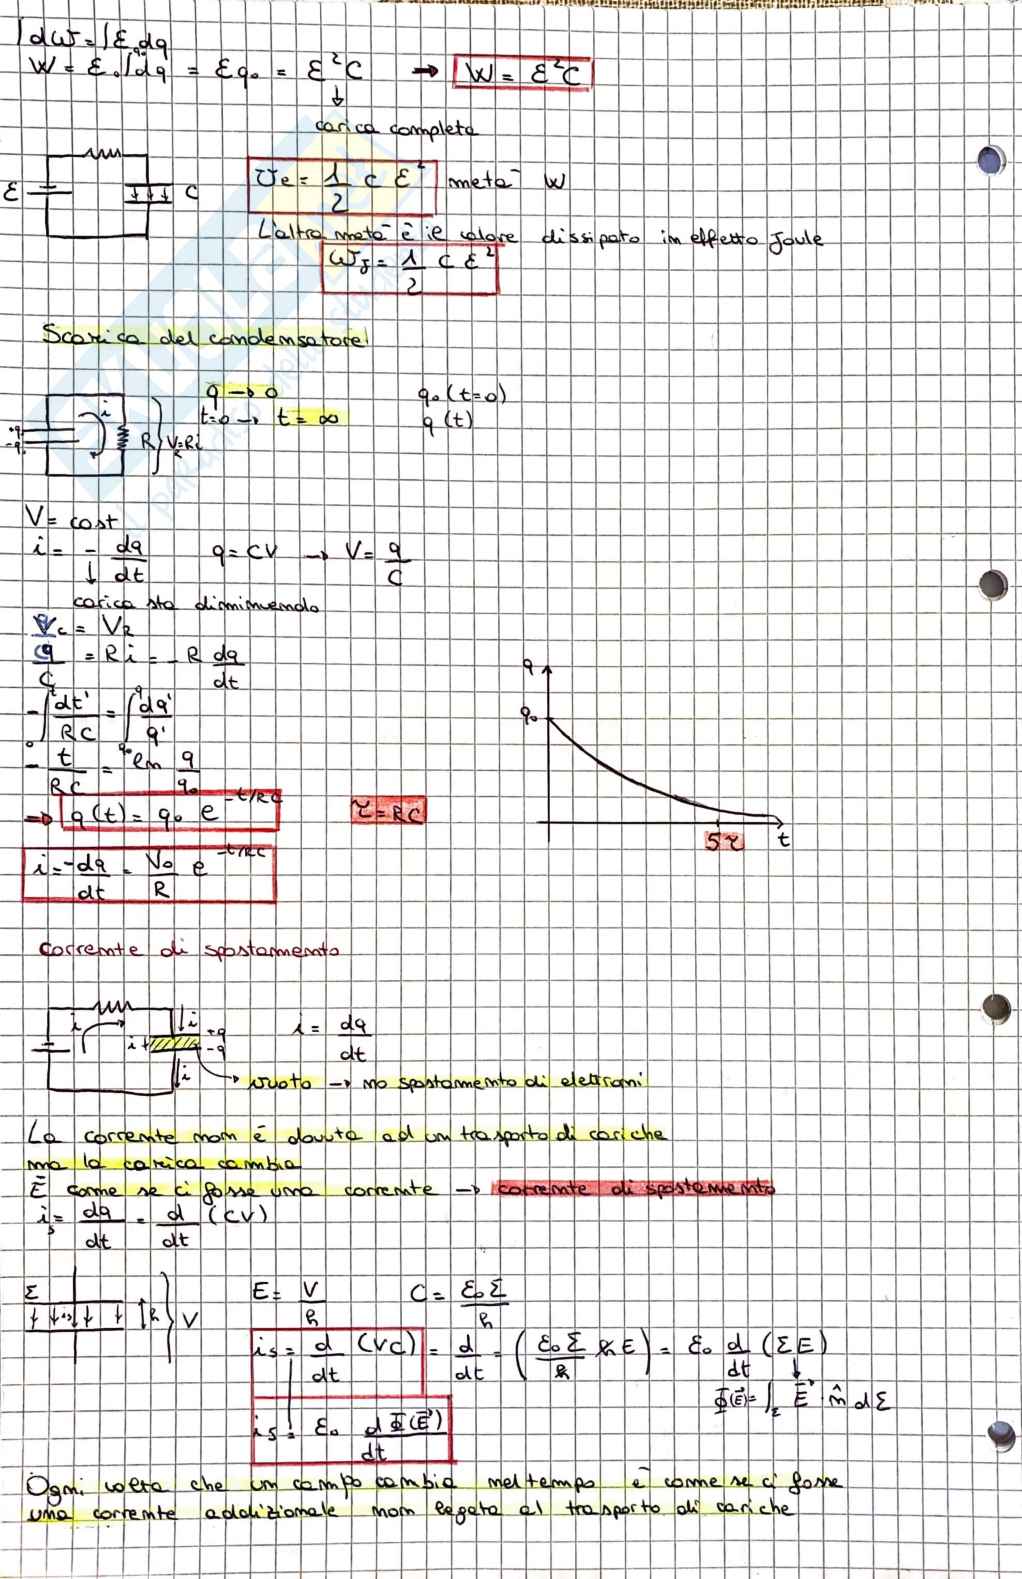 ∫dW = ∫ℰ₀dq
W = ℰ₀∫dq = ℰq₀ = ℰ²C → W = ℰ²C
↓
carica completa
ℰ C
Ue = 1/2 C ℰ² metà W
L'altra metà è il calore dissipato in effetto Joule
WJ = 1/2 C ℰ²
Scarica del condensatore
q → 0 q₀ (t=0)
t=0 → t = ∞ q (t)
+q -q i R V=Ri
R
V = cost
i = - dq/dt q = CV → V = q/C
↓
carica sta diminuendo
Vc = VR
q/C = Ri = - R dq/dt
-∫₀ᵗ dt'/RC = ∫q₀^q dq'/q'
- t/RC = ln q/q₀
→ q(t) = q₀ e^-t/RC τ = RC
i = -dq/dt = V₀/R e^-t/RC
q
q₀
5τ t
Corrente di spostamento
i i +q
i + -q
i
i = dq/dt
→ vuoto → no spostamento di elettroni
La corrente non è dovuta ad un trasporto di cariche
ma la carica cambia
È come se ci fosse una corrente → corrente di spostamento
is = dq/dt = d/dt (CV)
Σ is h V
E = V/h C = ε₀Σ/h
is = d/dt (VC) = d/dt = (ε₀Σ/h hE) = ε₀ d/dt (ΣE)
↓
Φ(E⃗) = ∫Σ E⃗ · n̂ dΣ
is = ε₀ dΦ(E⃗)/dt
Ogni volta che un campo cambia nel tempo è come se ci fosse
una corrente addizionale non legata al trasporto di cariche